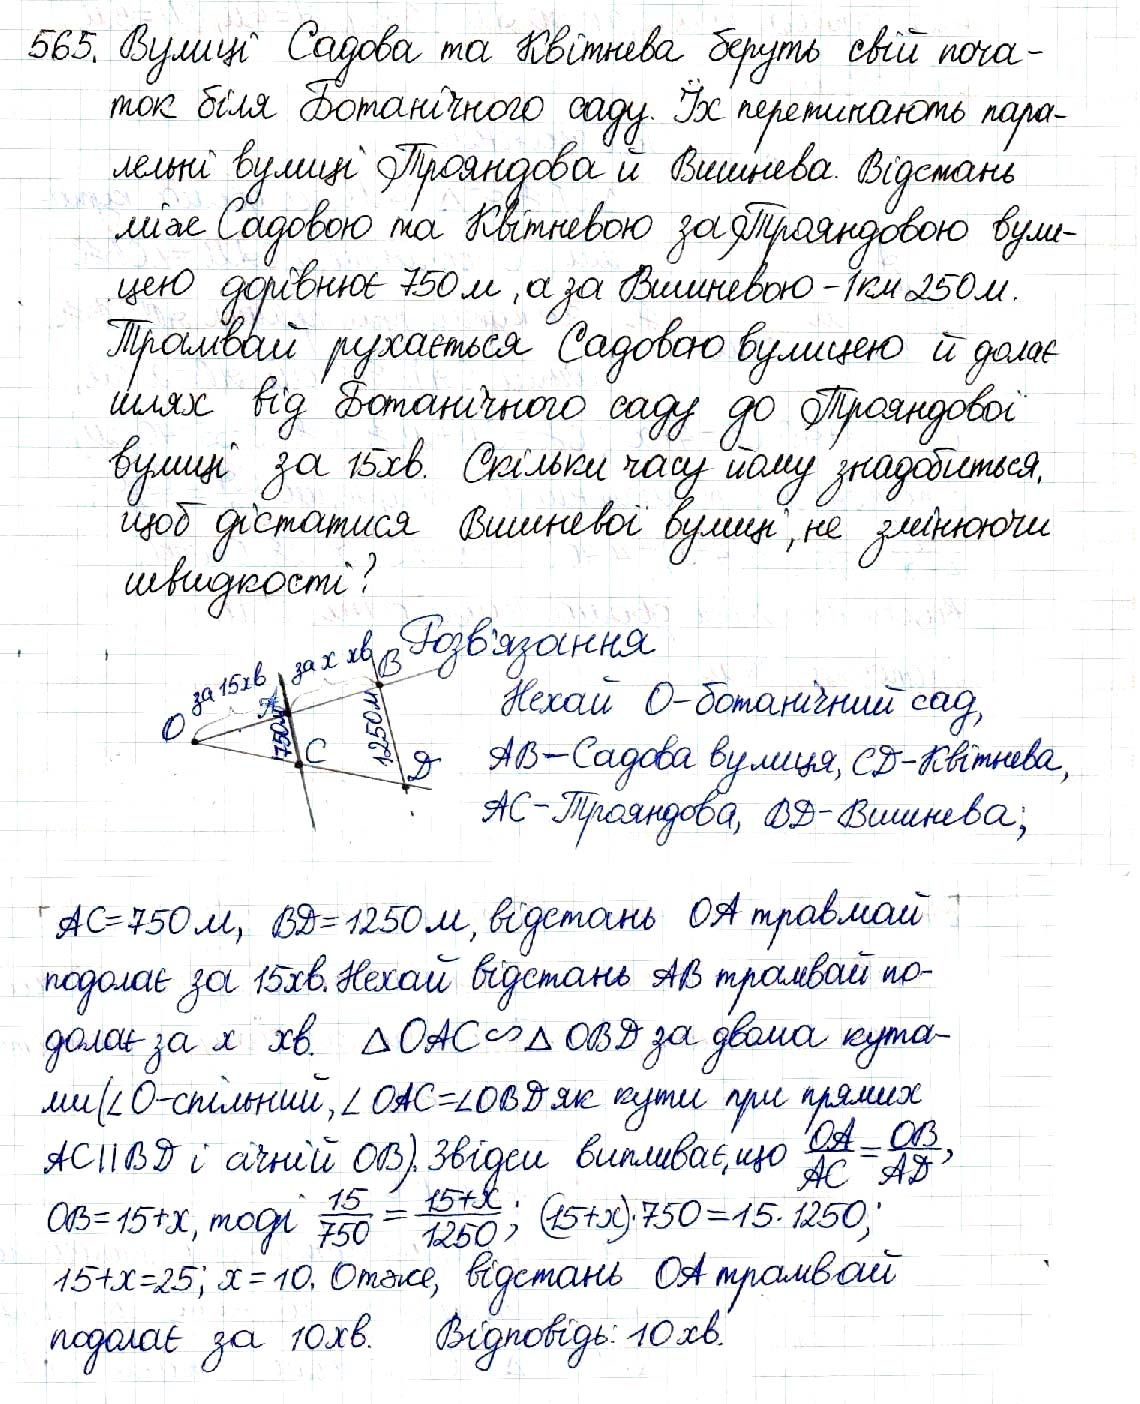 565. Вулиці Садова та Квітнева беруть свій поча-
ток біля Ботанічного саду. Їх перетинають пара-
лельні вулиці Трояндова й Вишнева. Відстань
між Садовою та Квітневою за Трояндовою вули-
цею дорівнює 750 м, а за Вишневою - 1 км 250 м.
Трамвай рухається Садовою вулицею й долає
шлях від Ботанічного саду до Трояндової
вулиці за 15 хв. Скільки часу йому знадобиться,
щоб дістатися Вишневої вулиці, не змінюючи
швидкості?
Розв'язання
за 15хв
за x хв
B
A
O
750м
C
1250м
D
Нехай О-ботанічний сад,
АВ-Садова вулиця, CD-Квітнева,
АС-Трояндова, BD-Вишнева;
АС=750 м, BD=1250 м, відстань ОА травмай
подолає за 15хв. Нехай відстань АВ трамвай по-
долає за x хв. △ОАС∽△OBD за двома кута-
ми (∠О-спільний, ∠ОАС=∠OBD як кути при прямих
АС||BD і січній ОВ). Звідси випливає, що OA/AC = OB/AD,
OB=15+x, тоді 15/750 = 15+x/1250; (15+x)·750=15·1250;
15+x=25; x=10. Отже, відстань ОА трамвай
подолає за 10хв. Відповідь: 10 хв.